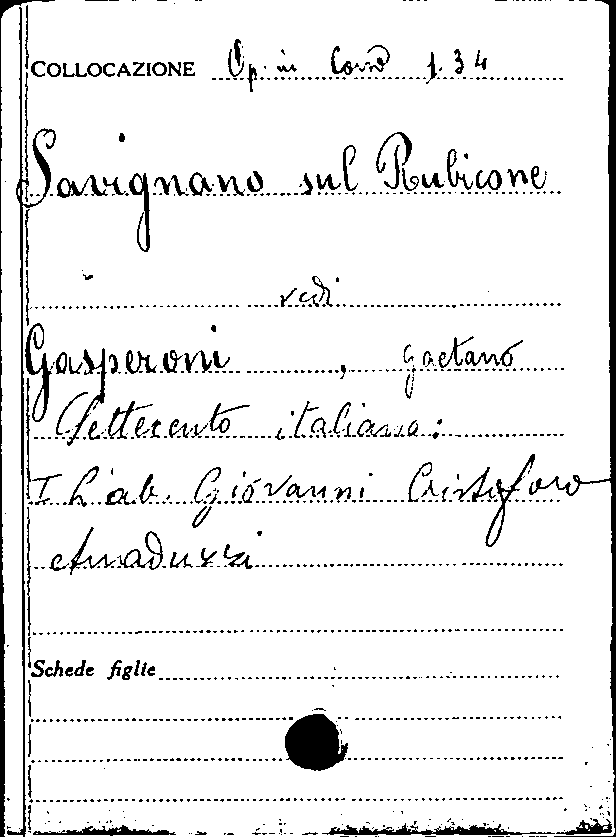 COLLOCAZIONE Op. in Cons 1.34
Savignano sul Rubicone
vedi
Gasperoni, Gaetano
Settecento italiano:
I L'ab. Giovanni Cristoforo
Amaduzzi
Schede figlie